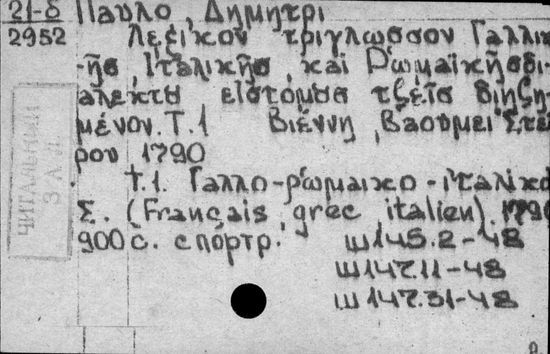 21-δ Παυλο, Δημητρι
2952 Λεξικον τριγλωσσον Γαλλικ
-ῆς, Ἰταλικῆς, καὶ Ῥωμαϊκῆς δι-
αλεκτȣ εἰς τόμȣς τζεῖς διῃρη
μένον. Τ.1 Βιέννη, Βαουμεϊστε
ρου 1790
т.1. Галло-ρωμαικο-ιταλικο
Σ. (Français, grec italien). 1790
900 с. с портр.
Ш145.2-48
Ш147.11-48
Ш147.31-48
ЧИТАЛЬНЫЙ
ЗАЛ